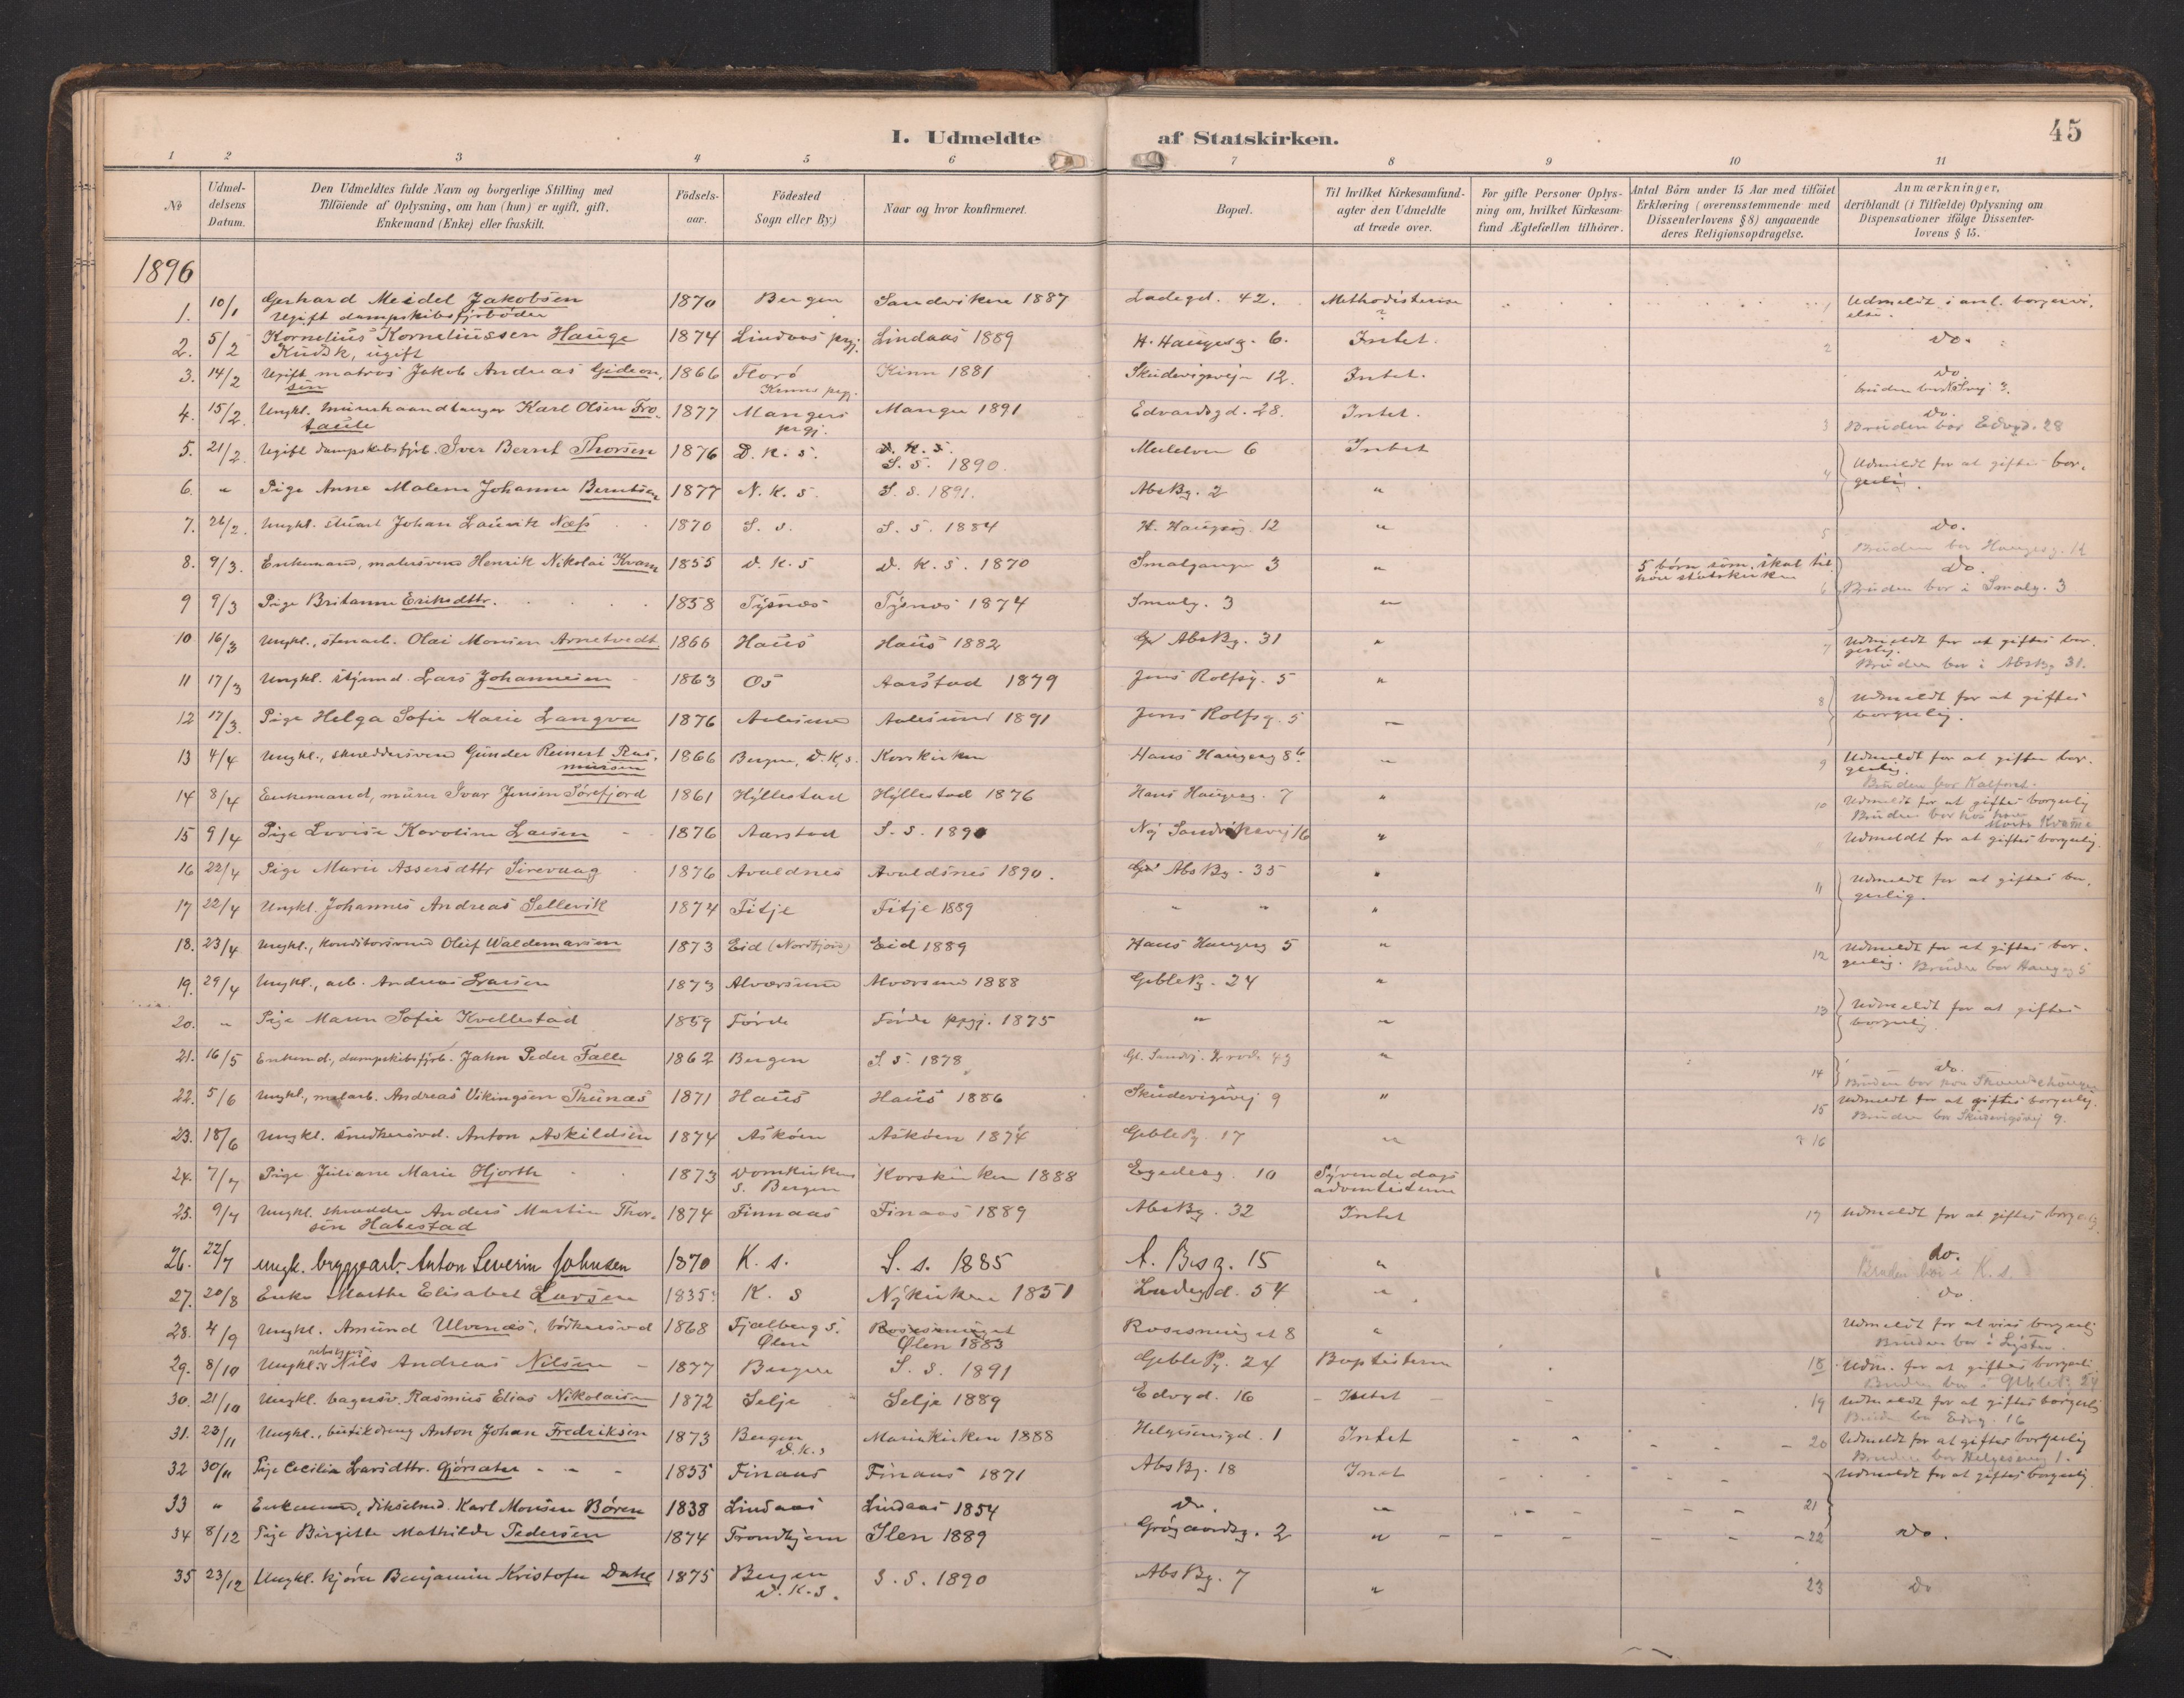 I. Udmeldte af Statskirken.
45
1 2 3 4 5 6 7 8 9 10 11
No
Udmeldelsens Datum.
Den Udmeldtes fulde Navn og borgerlige Stilling med
Tilföiende af Oplysning, om han (hun) er ugift, gift,
Enkemand (Enke) eller fraskilt.
Födselsaar.
Födested
Sogn eller By)
Naar og hvor konfirmeret.
Bopæl.
Til hvilket Kirkesamfund-
agter den Udmeldte
at træde over.
For gifte Personer Oplys-
ning om, hvilket Kirkesam-
fund Ægtefællen tilhörer.
Antal Börn under 15 Aar med tilföiet
Erklæring (overensstemmende med
Dissenterlovens § 8) angaaende
deres Religionsopdragelse.
Anmærkninger,
deriblandt (i Tilfælde) Oplysning om
Dispensationer ifölge Dissenter-
lovens § 15.
1896
1. 10/1 Gerhard Meidel Jakobsen 1870 Bergen Sandviken 1887 Ladegd. 42. Methodisterne 1 Udmeldt i anl. borgervi-
Ugift dampskibsfyrböder ? else.
2. 5/2 Kornelius Korneliussen Hauge 1874 Lindaas prgj. Lindaas 1889 H. Haugesg. 6. Intet. 2 do.
Kudsk, ugift
3. 14/2 Ugift matros Jakob Andreas Gideon- 1866 Florö Kinn 1881 Skudevigsvej 12. Intet. do
sen Kinns prgj.
4. 15/2 Ungkl. murerhaandlanger Karl Olsen Fro- 1877 Mangers Manger 1891 Edvardsgd. 28. Intet. do.
prgj. 3 Bruden bor Edvgd. 28
5. 21/2 Ugift dampskibsfyrb. Iver Bernt Thorsen 1876 D. K. S. D. K. S. Intet
S. S. 1890. 4 Udmeldt for at giftes bor-
6. " Pige Anne Malene Johanne Berntsen 1877 N. K. S. S. s. 1891. AbsBg. 2 " gerlig.
7. 26/2 Ungkl. stuart Johan Lauvik Næss 1870 S. s. S. S. 1884 H. Haugesg. 12 " 5 do.
Bruden bor Haugesg. 12
8. 9/3. Enkemand, malersvend Henrik Nikolai Kvam 1855 D. K. S D. K. S. 1870 Smalgangen 3 " 5 börn som skal til- do.
höre statskirken 6 Bruden bor i Smalg. 3
9 9/3 Pige Britanne Eriksdttr. 1858 Tysnæs Tysnes 1874 Smalg. 3 "
10 16/3 Ungkl., stenarb. Olai Monsen Arnetvedt 1866 Haus Haus 1882 AbsBg. 31 " 7 Udmeldt for at giftes bor-
gerlig.
Bruden bor i AbsBg 31.
11 17/3 Ungkl. stjmd. Lars Johannesen 1863 Os Aarstad 1879 Jens Rolfsg. 5 " 8 Udmeldt for at giftes
12 17/3. Pige Helga Sofie Marie Langva 1876 Aalesund Aalesund 1891 Jens Rolfsg. 5 " borgerlig.
13 4/4 Ungkl., skreddersvend Gunder Reinert Ras- 1866 Bergen, D. K. s. Korskirken Hans Haugesg 8b " 9 Udmeldt for at giftes bor-
mussen gerlig.
Bruden bor Kalfaret.
14 8/4 Enkemand, murer Ivar Jensen Sörefjord 1861 Hyllestad Hyllestad 1876 Hans Haugesg. 7 " 10 Udmeldt for at giftes borgerlig
15 9/4 Pige Lovise Karoline Larsen 1876 Aarstad S. S. 1890 Ny Sandviksvej 16 " Udmeldt for at giftes borgerlig.
16 22/4 Pige Marie Assersdttr Sirevaag 1876 Avaldnes Avaldsnes 1890. AbsBg. 35 " 11 Udmeldt for at giftes bor-
17 22/4 Ungkl. Johannes Andreas Sellevik 1874 Fitje Fitje 1889 " " " gerlig.
18. 23/4 Ungkl., konditorsvend Oluf Waldemarsen 1873 Eid (Nordfjord) Eid 1889 Hans Haugesg 5 " 12 Udmeldt for at giftes bor-
gerlig. Bruden bor Haugesg 5
19. 29/4 Ungkl., arb. Andreas Larsen 1873 Alversund Alversund 1888 GeblePg. 24 "
20. " Pige Maren Sofie Kvellestad 1859 Förde Förde prgj. 1875 " " 13 Udmeldt for at giftes
borgerlig
21. 16/5 Enkemd., dampskibsfyrb. Jahn Peder Falle 1862 Bergen S. S. 1878 " 14 do.
22. 5/6 Ungkl., Andreas Vikingsen Thunæs 1871 Haus Haus 1886 Skudevigsvej 9 " 15 Udmeldt for at giftes borgerlig.
Bruden bor Skudevigsvej 9.
23. 18/6 Ungkl. snedkersvd. Anton Askildsen 1874 Asköen Asköen GeblePg. 17 " 16
24. 7/7 Pige Juliane Marie Hjorth 1873 Domkirkens Korskirken 1888 Egedesg. 10 Syvende dags
S. Bergen adventisterne
25. 9/7 Ungkl. skrædder Anders Martin Thor- 1874 Finnaas Finaas 1889 AbsBg. 32 Intet 17 Udmeldt for at giftes borgerlig
sen Habestad
26. 22/7 ungk. bryggearb. Anton Severin Johnsen 1870 K. s. S. s. 1885 15 " do.
Bruden bor i K. s.
27. 20/8 Enke Marthe Elisabet Larsen 1835 K. S Nykirken 1851 Ladegd. 54 " do.
28. 4/9 Ungkl. Amund Ulvenæs, bödkersvend 1868 Fjelberg S. Rosesmuget Rosesmuget 8 " Udmeldt for at vies borgerlig
Ölen Ölen 1883
29. 8/10 Ungkl. Nils Andreas Nilsen 1877 Bergen S. S. 1891 GeblePg. 24 Baptisterne 18 Udm. for at giftes borgerlig.
Bruden bor i GeblePg. 24
30. 21/10 Ungkl. bagersv. Rasmus Elias Nikolaisen 1872 Selje Selje 1889 Edvgd. 16 Intet 19 Udmeldt for at giftes borgerlig
Bruden bor Edvg. 16
31. 23/11 Ungkl., butikdreng Anton Johan Fredriksen 1873 Bergen Mariakirken 1888 Helgesensgd. 1 Intet 20 Udmeldt for at giftes borgerlig
D. K. s Bruden bor Helgesensg 1.
32 30/11 Pige Cecilia Larsdttr. Gjörsater 1855 Finaas Finaas 1871 AbsBg. 18 Intet Udmeldt for at giftes borgerlig
33 " Enkemand, Karl Monsen Bören 1838 Lindaas Lindaas 1854 Do. " 21
34 8/12 Pige Birgitte Mathilde Pedersen 1874 Trondhjem Ilen 1889 Grögaardsg. 2 " 22 do.
35 23/12 Ungkl. kjörer Benjamin Kristofer Dahl 1875 Bergen S. S. 1890 AbsBg. 7 " 23 do
D. K. S.